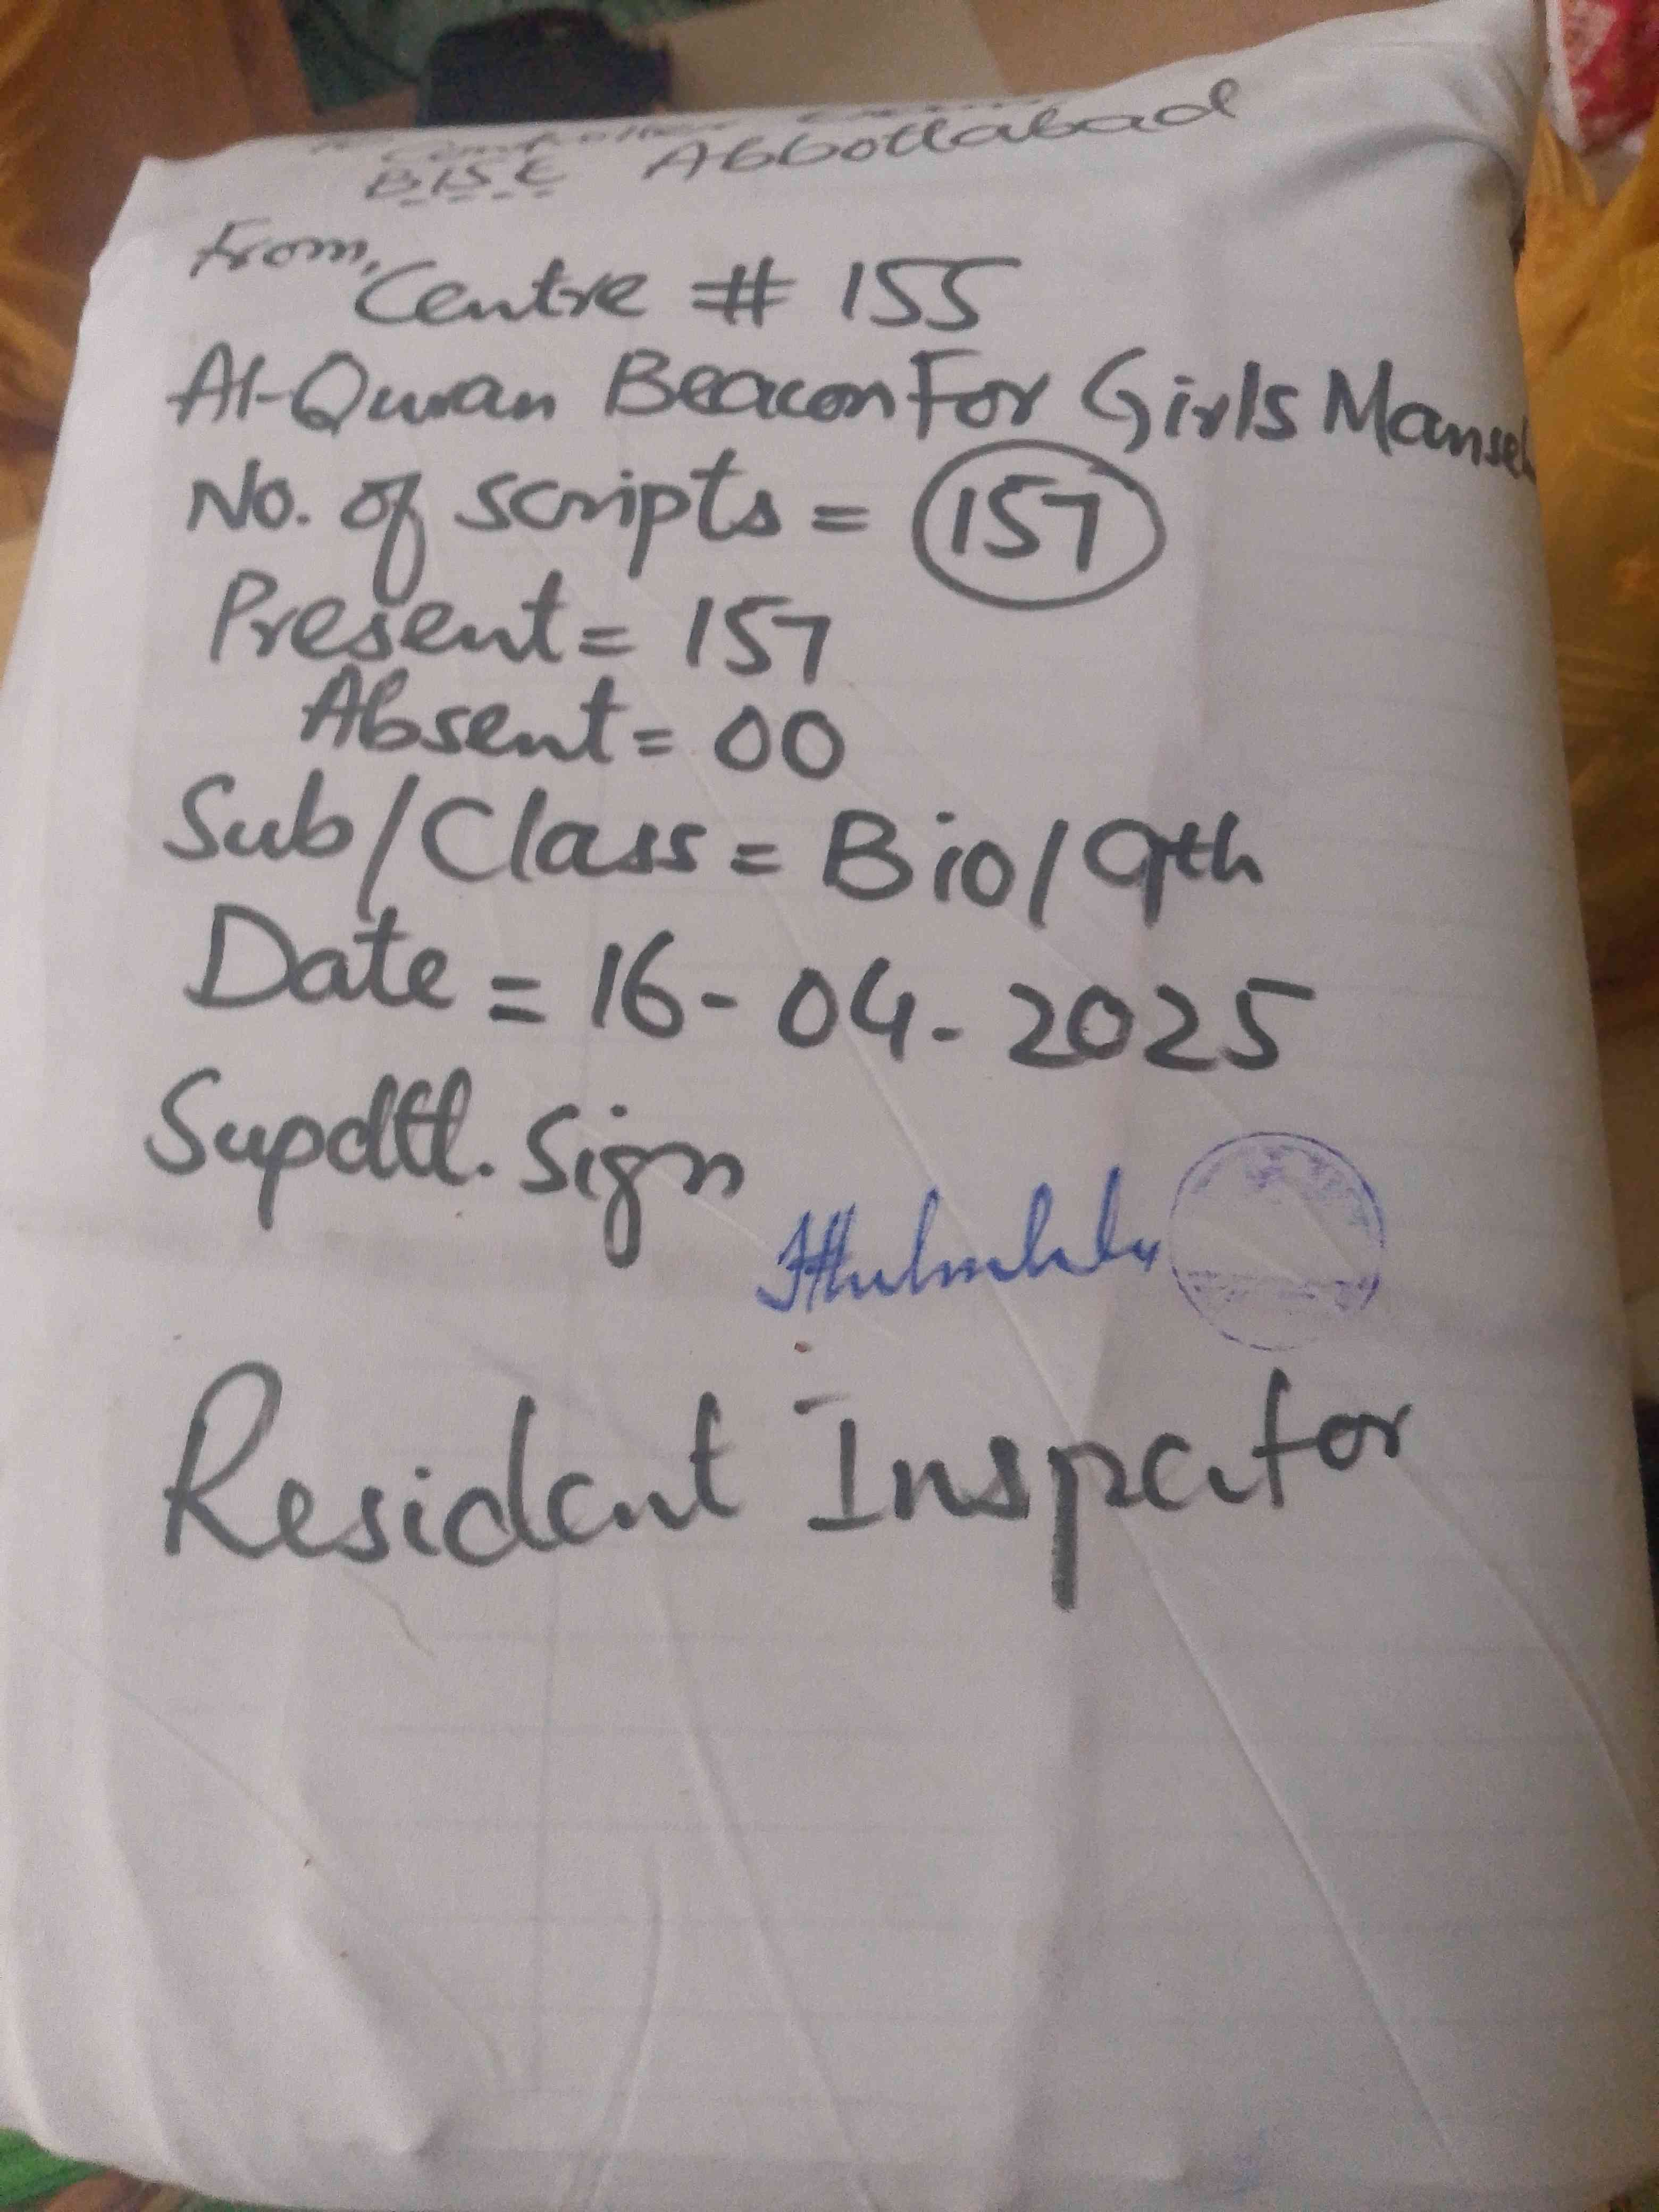 B.I.S.E Abbottabad
From,
Centre # 155
Al-Quran Beacon For Girls
No. of scripts = 157
Present = 157
Absent = 00
Sub/Class = Bio/9th
Date = 16-04-2025
Supdtt. Sign
Resident Inspector